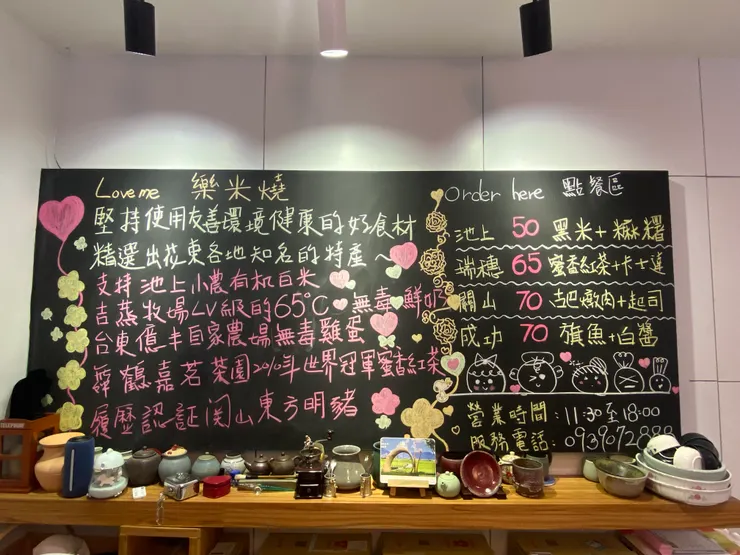 Love me 樂米燒
堅持使用友善環境健康的好食材
精選出花東各地知名的特產~
支持池上小農有机白米
吉蒸牧場LV級的65°C 無毒鮮奶
台東億丰自家農場無毒雞蛋
舞鶴嘉茗茶園2010年世界冠軍蜜香紅茶
履歷認証関山東方明豬
Order here 點餐區
池上 50 黑米+麻糬
瑞穗 65 蜜香紅茶+卡士達
關山 70 起司
成功 70 旗魚+白醬
營業時間:11:30至18:00
服務電話:
TELEPHONE